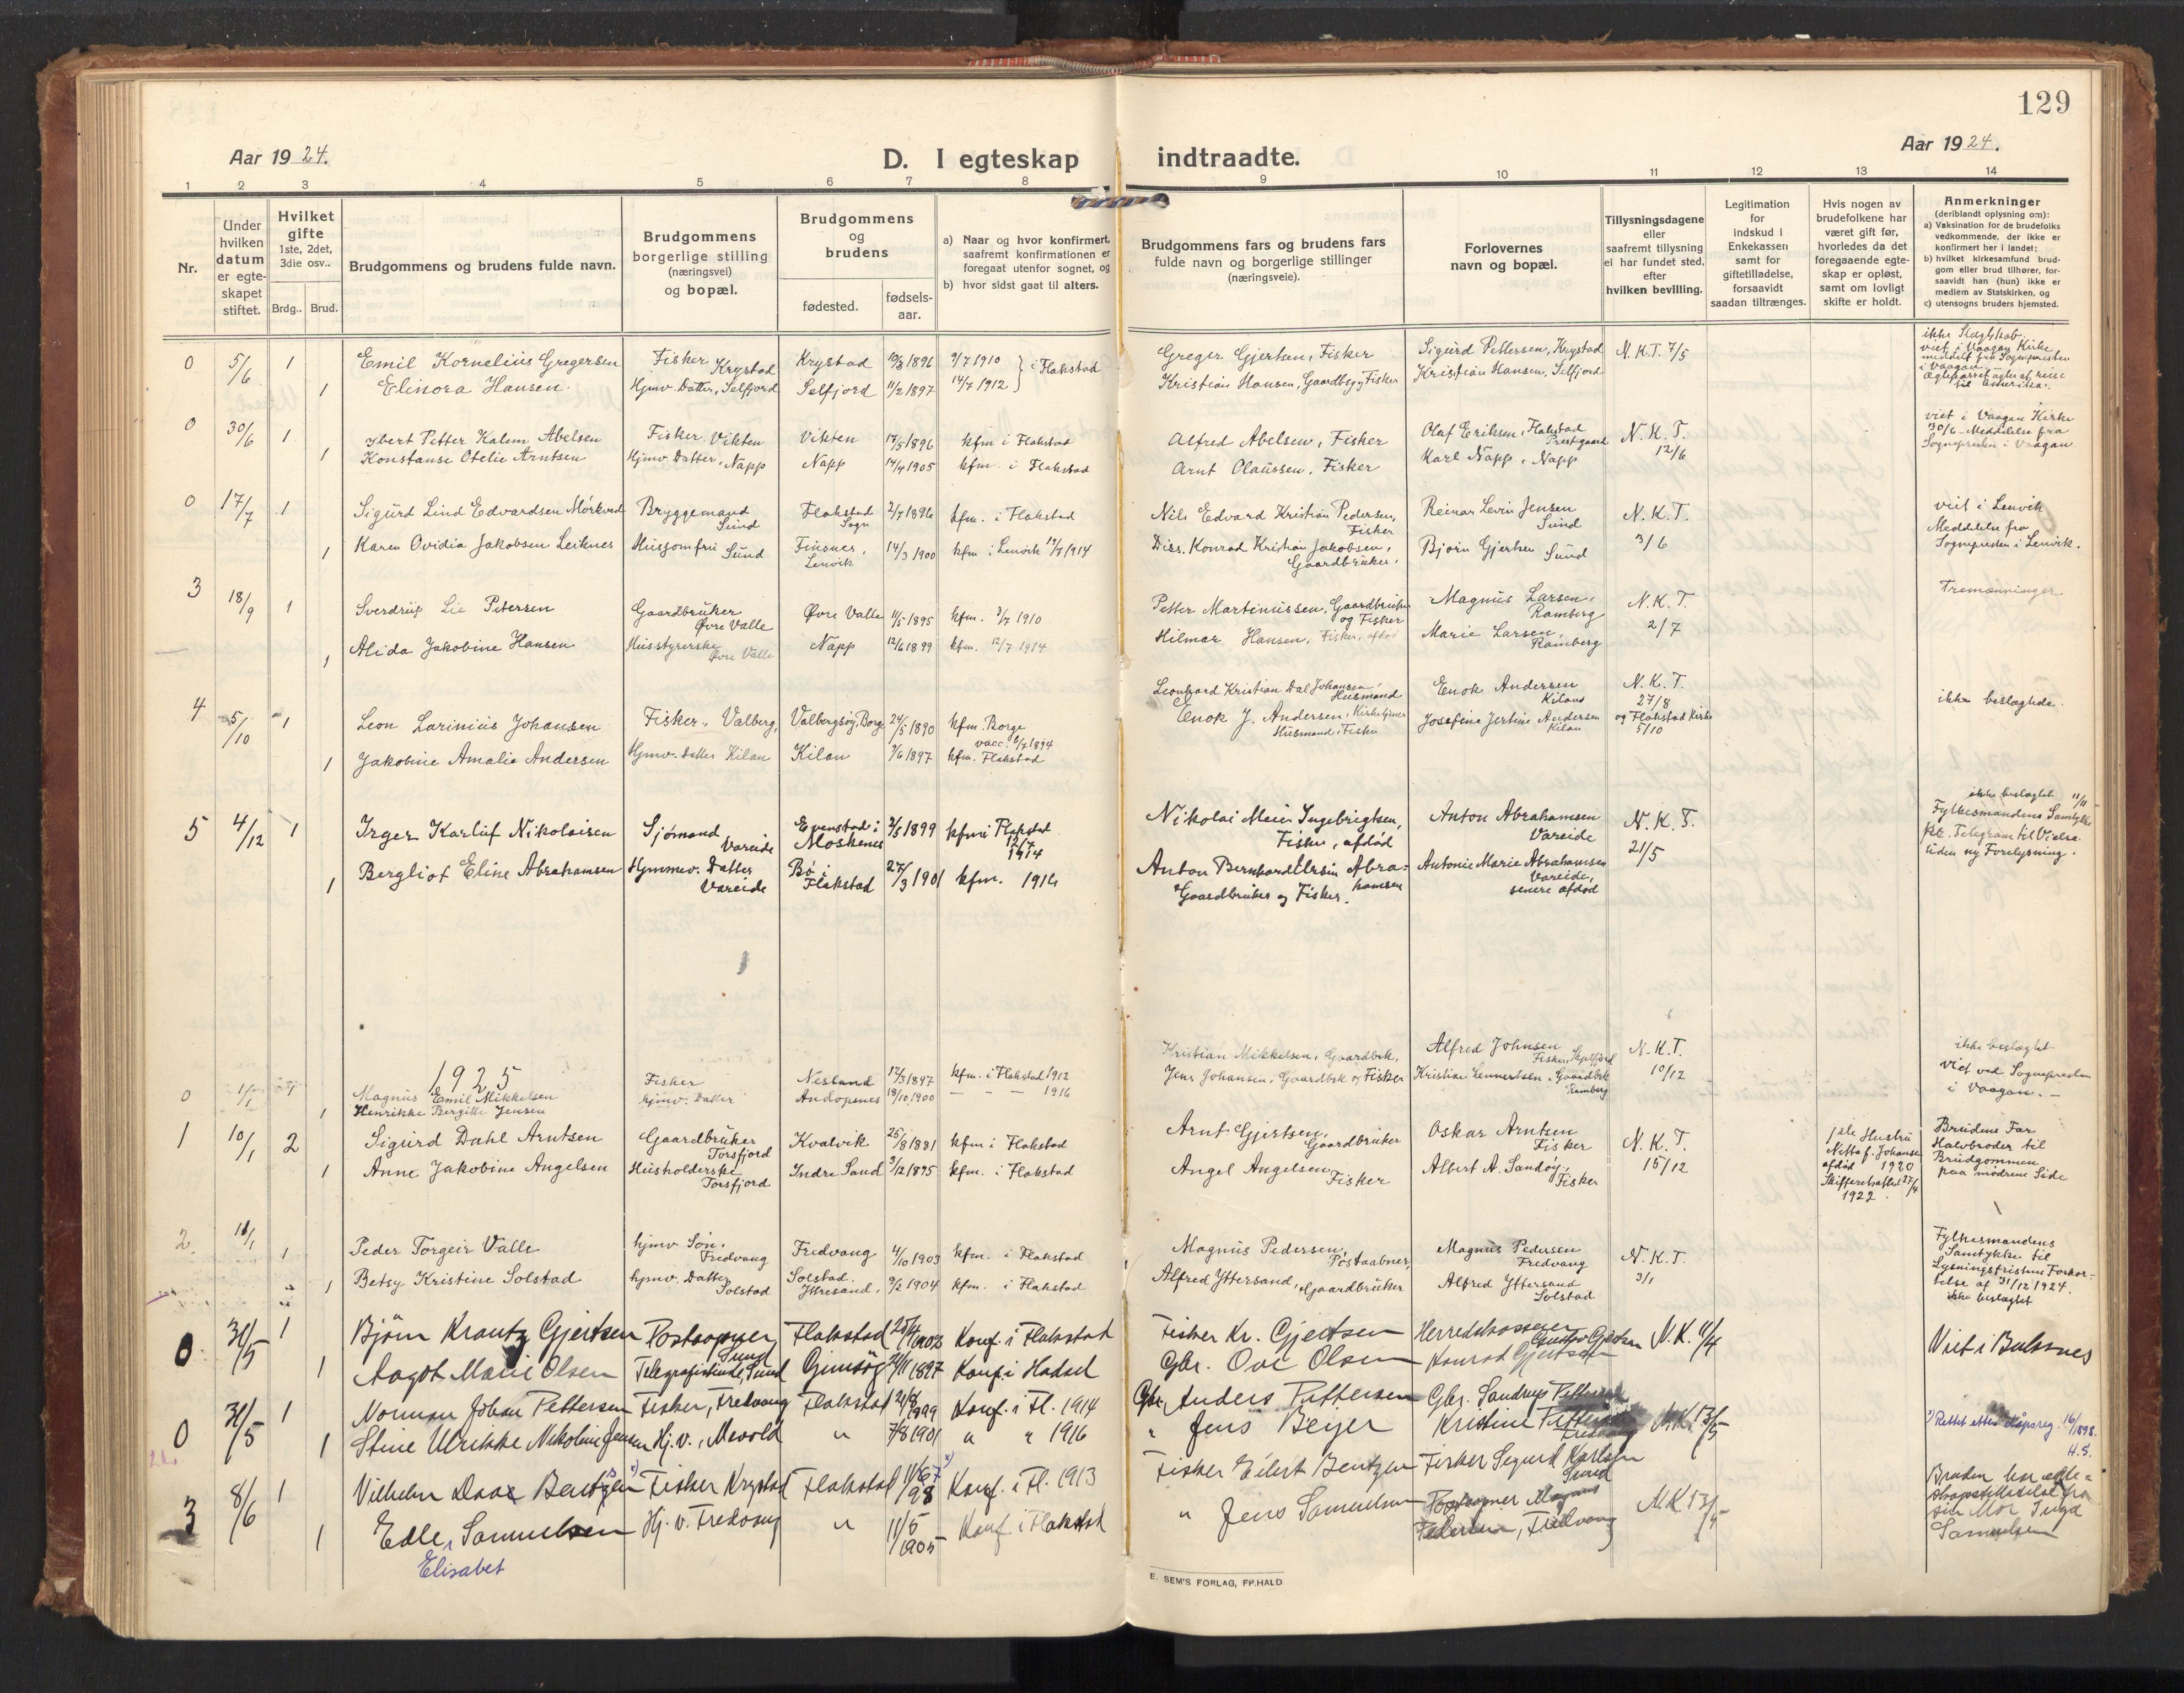 129
Aar 1924.
D. I egteskap indtraadte.
Aar 1924.
1 2 3 4 5 6 7 8 9 10 11 12 13 14
Nr.
Under hvilken datum er egteskapet stiftet.
Hvilket gifte 1ste, 2det, 3die osv..
Brdg.. Brud.
Brudgommens og brudens fulde navn.
Brudgommens borgerlige stilling (næringsvei) og bopæl.
Brudgommens og brudens
fødested. fødsels-aar.
a) Naar og hvor konfirmert, saafremt konfirmationen er foregaat utenfor sognet, og
b) hvor sidst gaat til alters.
Brudgommens fars og brudens fars fulde navn og borgerlige stillinger (næringsveie).
Forlovernes navn og bopæl.
Tillysningsdagene eller saafremt tillysning ei har fundet sted, efter hvilken bevilling.
Legitimation for indskud i Enkekassen samt for giftetilladelse, forsaavidt saadan tiltrænges.
Hvis nogen av brudefolkene har været gift før, hvorledes da det foregaaende egteskap er opløst, samt om lovligt skifte er holdt.
Anmerkninger (deriblandt oplysning om):
a) Vaksination for de brudefolks vedkommende, der ikke er konfirmert her i landet;
b) hvilket kirkesamfund brudgom eller brud tilhører, forsaavidt han (hun) ikke er medlem av Statskirken, og
c) utensogns bruders hjemsted.
0 5/6 1 Emil Kornelius Gregersen Fisker Krystad Krystad 10/3 1896 3/7 1910 Greger Gjertsen, Fisker Sigurd Pettersen, Krystad N.K.T. 7/5
1 Elinora Hansen. Hjmv. Datter, Selfjord Selfjord 11/2 1897 14/7 1912 } i Flakstad Kristian Hansen, Gaardbr. og Fisker Kristian Hansen, Selfjord
viet i Vaagan Kirke meddelt fra Sognepresten i Vaagan.
0 30/6 1 Petter Kalem Abelsen Fisker, Vikten Vikten 17/5 1896 kfm i Flakstad Alfred Abelsen, Fisker Olaf Eriksen, Flakstad Prestegaard N.K.T. 12/6
1 Konstanse Otelie Arntsen Hjmv. Datter, Napp Napp 14/4 1905 kfm. i Flakstad Arnt Olaussen, Fisker Karl Napp, Napp
viet i Vaagan Kirke 30/6 - Meddelelse fra Sognepresten i Vaagan
0 17/7 1 Sigurd Lind Edvardsen Mörkved Bryggemand Sund Flakstad Sogn 2/7 1896 kfm. i Flakstad Nils Edvard Kristian Pedersen, Fisker Reinar Levin Jensen Sund N.K.T. 3/6
1 Karen Ovidia Jakobsen Leiknes Husjomfru Sund Finsnes, Lenvik 14/3 1900 kfm i Lenvik 19/7 1914 Diss. Konrad Kristian Jakobsen, Gaardbruker, Bjorn Gjertsen Sund
viet i Lenvik Meddelelse fra Sognepresten i Lenvik.
3 18/9 1 Sverdrup Lie Petersen Gaardbruker Øvre Valle Øvre Valle 11/5 1895 kfm. 3/7 1910 Petter Martinussen, Gaardbruker og Fisker Magnus Larsen, Ramberg N.K.T. 2/7
1 Alida Jakobine Hansen Husstyrerske Øvre Valle Napp 12/6 1899 kfm. 12/7 1914 Hilmar Hansen, Fisker, afdød Marie Larsen, Ramberg
Tremænninger
4 5/10 1 Leon Larinius Johansen Fisker, Valberg, Valbergsøy, Borg 24/5 1890 kfm. Borge Leonhard Kristian Dal Johansen, Husmand Enok Andersen Kilan N.K.T. 27/8 og Flakstad Kirke 5/10
1 Jakobine Amalie Andersen Hjmv. Datter Kilan Kilan 3/6 1897 kfm. Flakstad Enok J. Andersen, Kirketjener Husmand, Fisker Josefine Jertine Andersen Kilan
ikke beslægtede.
5 4/12 1 Irger Karluf Nikolaisen Sjømand Vareide Evenstad i Moskenes 2/5 1899 kfm i Flakstad 12/7 1914 Nikolai Meier Ingebrigtsen, Fisker, afdød Anton Abrahamsen Vareide N.K.T. 21/5
1 Bergliot Eline Abrahamsen Hjmmev. Datter Vareide Bø i Flakstad 27/3 1901 kfm. 1916 Anton Bernhard Ursin Abrahamsen Gaardbruker og Fisker. Antonie Marie Abrahamsen Vareide, senere afdød
ikke beslægtet 11/11 Fylkesmandens Samtykke pr. Telegram til Vielse uden ny Forelysning.
1925
0 1/1 Magnus Emil Mikkelsen Fisker Nesland 12/3 1897 kfm. i Flakstad 1912 Kristian Mikkelsen, Gaardbrk. Alfred Johnsen Fisker, Skjelfjord N.K.T. 10/12
1 Henrikke Bergitte Jensen hjmv. Datter Andopsnes 18/10 1900 — — — 1916 Jens Johansen, Gaardbrk og Fisker Kristine Lennertsen, Gaardbrk Ramberg
ikke beslægtet Viet ved Sognepresten i Vaagan. —
1 10/1 2 Sigurd Dahl Arntsen Gaardbruker Torsfjord Kvalvik 25/8 1881 kfm i Flakstad Arnt Gjertsen, Gaardbruker Oskar Arntsen Fisker N.K.T. 15/12
1 Anne Jakobine Angelsen Husholderske Torsfjord Indre Sand 3/12 1895 kfm. i Flakstad Angel Angelsen, Fisker Albert A. Sandøy, Fisker
1ste Hustru Netta f. Johansen afdød 1920 Skifteretsattest 27/4 1922.
Brudens Far Halvbroder til Brudgommen paa mødrene Side
2. 11/1 1 Peder Torgeir Valle hjmv Søn, Fredvang Fredvang 4/10 1903 kfm. i Flakstad Magnus Pedersen, Postaabner, Magnus Pedersen Fredvang N.K.T. 3/1
1 Betsy Kristine Solstad hjmv. Datter Solstad Solstad. Yttresand. 9/2 1904 kfm. i Flakstad Alfred Yttersand, Gaardbruker Alfred Yttersand Solstad
Fylkesmandens Samtykke til Lysningsfristens Forkortelse af 31/12 1924. ikke beslægtet
0 31/5 1 Bjørn Krantz Gjertsen Postaapner, Sund Flakstad 25/4 1903 Konf. i Flakstad Fisker Kr. Gjertsen Herredskasserer Gustav Gjertsen N.K. 11/4
1 Aagot Marie Olsen Telegrafistinde, Sund Gimsøy 24/11 1897 Konf. i Hadsel Gbr. Ove Olsen Konrad Gjertsen
Viet i Buksnes
0 31/5 1 Norman Johan Pettersen Fisker, Fredvang Flakstad 21/8 1899 Konf. i Fl. 1914 Gbr. Anders Pettersen Gbr. Sandrup Pettersen
1 Stine Ulrikke Nikoline Jensen Hj. v., Mevold " 7/8 1901 " " 1916 " Jens Beyer Kristine Pettersen Fredvang N.K. 13/5
*) Rettet etter dåpsreg. 16/1898. H.S.
3 8/6 1 Vilhelm Daae Bentzen Fisker Krystad Flakstad 11/6 98 Konf. i Fl. 1913 Fisker Eilert Bentzen Fisker Sigurd Karlsen Sund
1 Edle, Samuelsen Hj. v. Fredvang " 11/5 1905 Konf i Flakstad " Jens Samuelsen Postaapner Magnus Pedersen, Fredvang N.K. 13/5
Elisabet
Bruden har fra sin Mor Inga Samuelsen
E. SEM'S FORLAG, FR.HALD